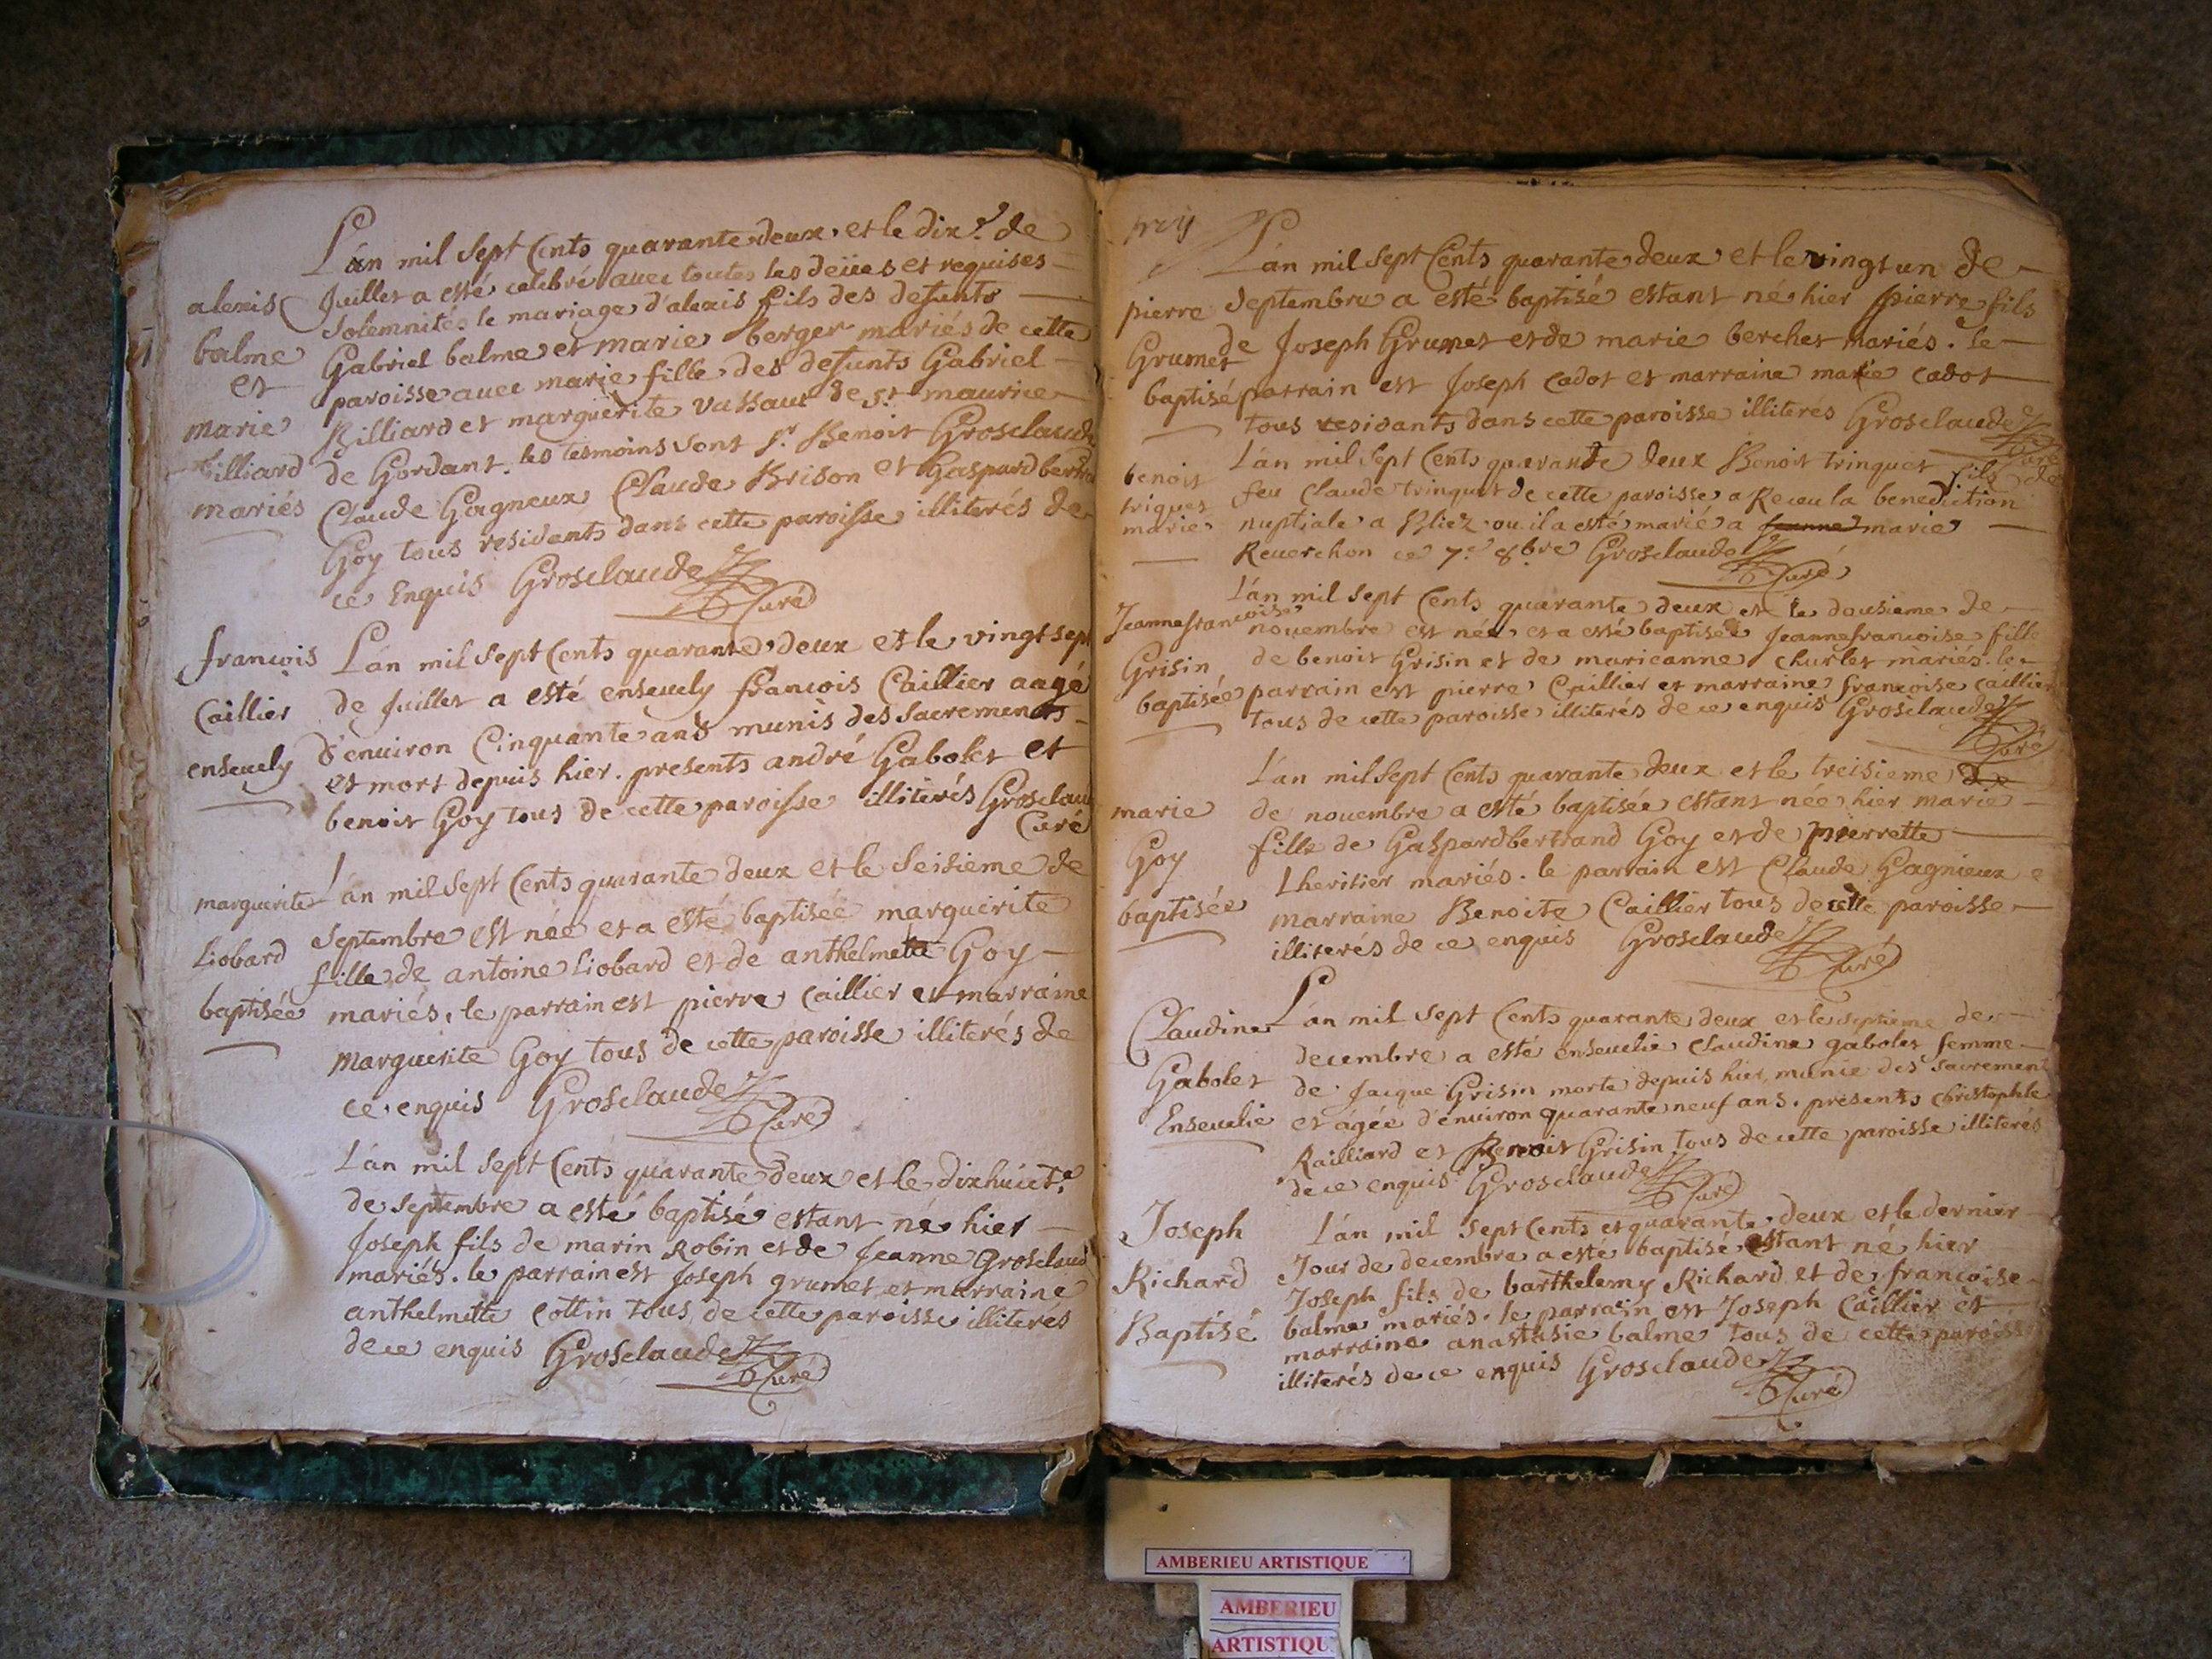 L'an mil sept Cents quarante deux et le dix.e de
Juillet a esté celebré avec toutes les deües et requises
alexis
Solemnités le mariage d'alexis fils des defunts
balme
Gabriel balme et marie berger mariés de cette
et
paroisse avec marie fille des defunts Gabriel
marie
Billiard et marguerite Vassaut de st maurice
billiard
de Gordant. les tesmoins sont sr Benoit Grosclaude
mariés
Claude Gagneux Claude Brison et Gaspard bertrand
Goy tous residents dans cette paroisse illiterés de
ce Enquis Grosclaude
Curé
francois
L'an mil sept Cents quarante deux et le vingt sept
Caillier
de Juillet a esté ensevely francois Caillier aagé
d'environ Cinquante ans munis des Sacrements
ensevely
et mort depuis hier. presents andré Gabolet et
benoit Goy tous de cette paroisse illiterés Grosclau
Curé
marguerite
L'an mil sept Cents quarante deux et le seisieme de
septembre est née et a esté baptisée marguerite
Liobard
fille de antoine Liobard et de anthelmette Goy
baptisée
mariés. le parrain est pierre Caillier et marraine
marguerite Goy tous de cette paroisse illiterés de
ce enquis Grosclaude
Curé
L'an mil sept Cents quarante deux et le dixhuict.e
de septembre a esté baptisé estant né hier
Joseph fils de marin Robin et de Jeanne Grosclaud
mariés. le parrain est Joseph grumet et marraine
anthelmette Cottin tous de cette paroisse illiterés
de ce enquis Grosclaude
Curé
L'an mil sept Cents quarante deux et le vingt un de
pierre
septembre a esté baptisé estant né hier pierre fils
Grumet
de Joseph Grumet et de marie berchet mariés. le
baptisé
parrain est Joseph cadot et marraine marie cadot
tous residants dans cette paroisse illiterés Grosclaude
Curé
benoit
L'an mil sept Cents quarante deux Benoit trinquet fils de
triquet
feu Claude trinquet de cette paroisse a Receu la benediction
marié
nuptiale a Bliez ou il a esté marié a jeanne marie
Reverchon ce 7.e 8bre Grosclaude
Curé
Jeannefrancoise
L'an mil sept Cents quarante deux et le dousieme de
novembre est née et a esté baptisée Jeannefrancoise fille
Grisin
de benoit Grisin et de marieanne Charlet mariés. le
baptisée
parrain est pierre Caillier et marraine francoise caillier
tous de cette paroisse illiterés de ce enquis Grosclaude
Curé
L'an mil sept Cents quarante deux et le treisieme de
marie
de novembre a esté baptisée estant née hier marie
Goy
fille de Gaspardbertrand Goy et de pierrette
Lheritier mariés. le parrain est Claude Gagnieux e
baptisée
marraine Benoite Caillier tous de cette paroisse
illiterés de ce enquis Grosclaude
Curé
Claudine
L'an mil sept Cents quarante deux et le septieme de
decembre a esté ensevelie Claudine gabolet femme
Gabolet
de Jacque Grisin morte depuis hier, munie des Sacrement
Ensevelie
et âgée d'environ quarante neuf ans. presents Christophle
Railliard et Benoit Grisin tous de cette paroisse illiterés
de ce enquis Grosclaude
Curé
Joseph
L'an mil sept Cents et quarante deux et le dernier
Jour de decembre a esté baptisé estant né hier
Richard
Joseph fils de barthelemy Richard et de francoise
balme mariés. le parrain est Joseph Caillier et
Baptisé
marraine anastasie balme tous de cette paroiss
illiterés de ce enquis Grosclaude
Curé
AMBERIEU ARTISTIQUE
AMBERIEU
ARTISTIQU